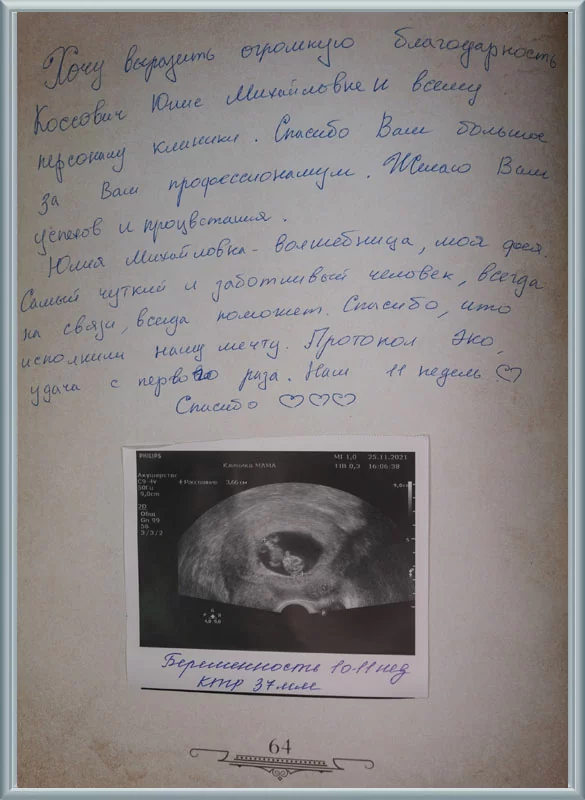 Хочу выразить огромную благодарность
Коссович Юлие Михайловне и всему
персоналу клиники. Спасибо Вам большое
за Ваш профессионализм. Желаю Вам
успехов и процветания.
Юлия Михайловна - волшебница, моя фея.
Самый чуткий и заботливый человек, всегда
на связи, всегда поможет. Спасибо, что
исполнили нашу мечту. Протокол Эко,
удача с первого раза. Наш 11 недель ♡
Спасибо ♡♡♡
PHILIPS
MI 1,0 25.11.2021
Клиника МАМА
TIB 0,3 16:06:38
Акушерство
C9-4v
50Гц
9,0cm
+ Расстояние 3,66 см
2D
Общ
Gn 99
56
3/3/2
Беременность 10-11 нед
КТР 37 мм
64